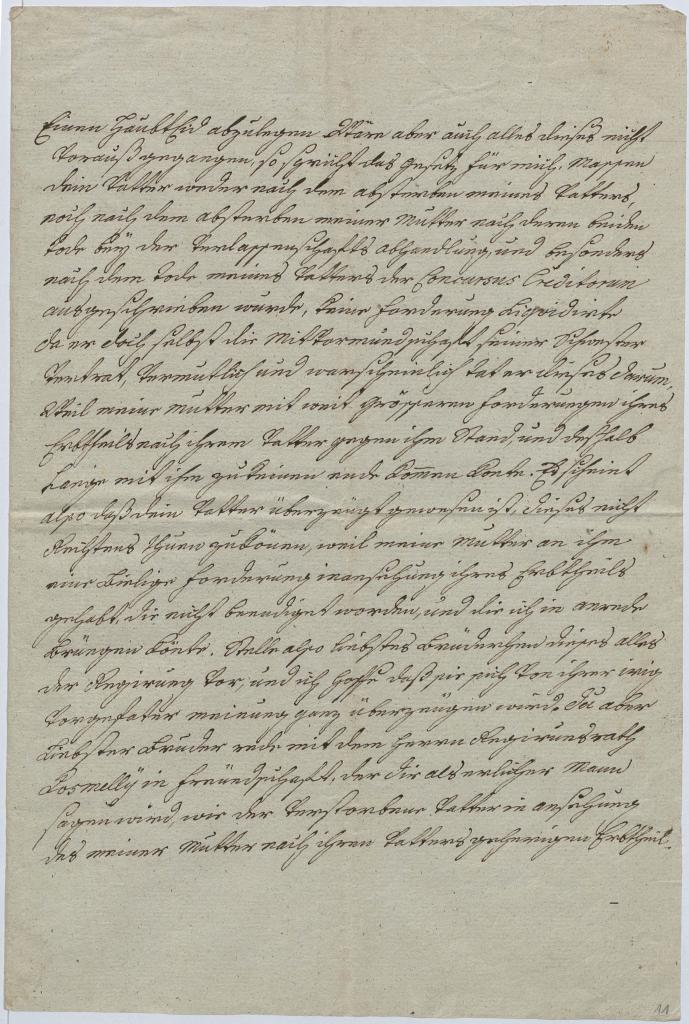 Einen HaubtEid abzulegen Wäre aber auch alles dieses nicht
Vorausgegangen, so spricht das gesetz für mich, Massen
dein Vatter weder nach dem absterben meines Vatters,
noch nach dem absterben meiner Mutter nach deren beiden
tode bey der Verlassenschaffts abhandlung, und besonders
nach dem tode meines Vatters der Concursus Creditorum
ausgeschrieben wurde, keine forderung Liquidirte
da er doch selbst die Mitvormundschafft seiner Schwester
Vertrat, Vermutlich und warscheinlich tat er dieses darum,
Weil meine Mutter mit weit grösseren forderungen ihres
Erbtheils nach ihrem Vatter gegen ihm Stand, und deshalb
Lange mit ihm zu keinen ende kommen konte. Es scheint
also daß dein Vatter überzeugt gewesen ist, dieses nicht
Rechtens thuen zu könen, weil meine Mutter an ihm
eine Bielige forderung in ansehung ihres Erbtheils
gehabt, die nicht beendiget worden, und die ich in anrede
Brüngen könte. Stelle also liebstes Brüderchen dieses alles
der Regirung vor, und ich hoffe daß sie sich von ihrer irig
Vorgefaster meinung ganz überzeugen wird. Du aber
Liebster Bruder rede mit dem Herrn Regirunsrath
Kosmelly in freundschafft, der dir als erlicher Mann
sagen wird, wie der Verstorbene Vatter in ansehung
des meiner Mutter nach ihren Vatter geherigen Erbtheil.
11